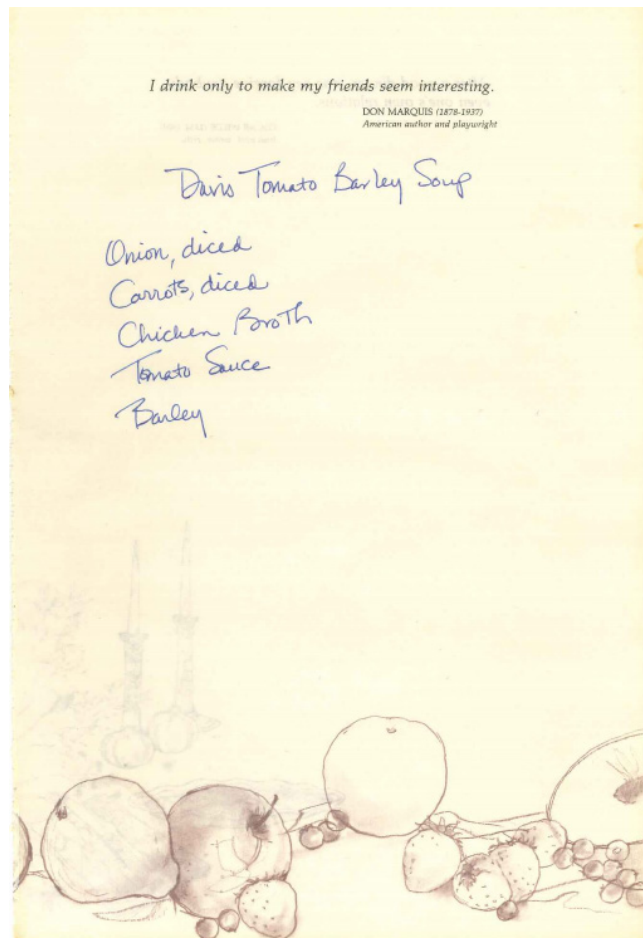 I drink only to make my friends seem interesting.
DON MARQUIS (1878-1937)
American author and playwright
Davis Tomato Barley Soup
Onion, diced
Carrots, diced
Chicken Broth
Tomato Sauce
Barley